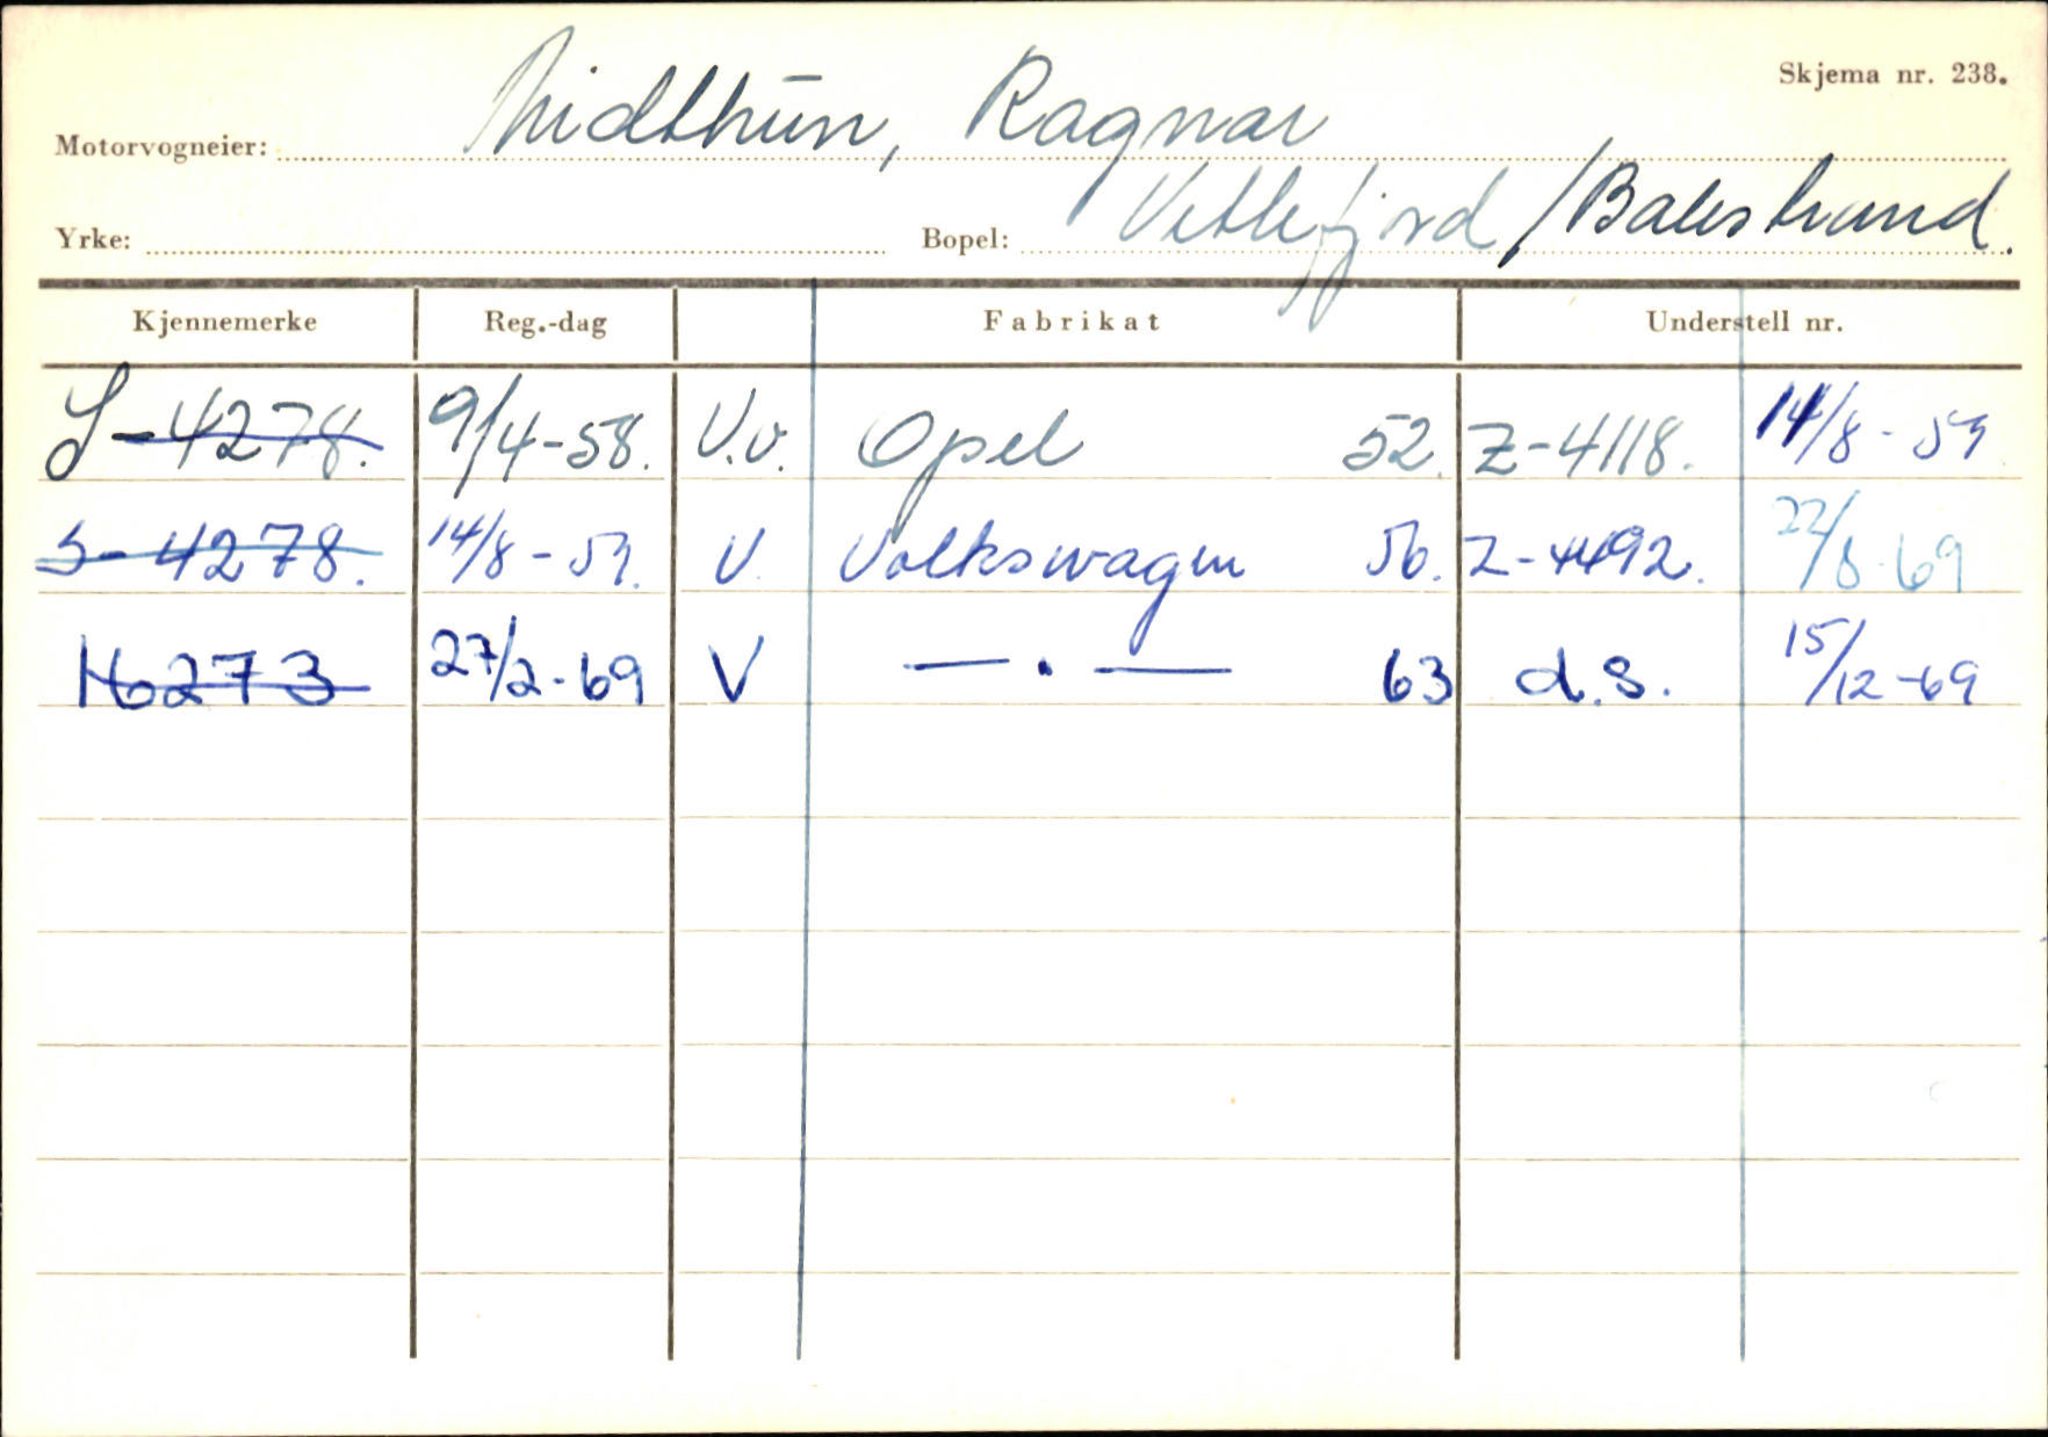 Skjema nr. 238.
Motorvogneier: Midthun, Ragnar
Yrke: Bopel: Vetlefjord / Balestrand.
Kjennemerke Reg.-dag Fabrikat Understell nr.
S-4278. 9/4-58. V.v. Opel 52. Z-4118. 14/8-59
S-4278. 14/8-59. V. Volkswagen 56. Z-4492. 22/8-69
16273 27/2-69 V —·— 63 d.s. 15/12-69